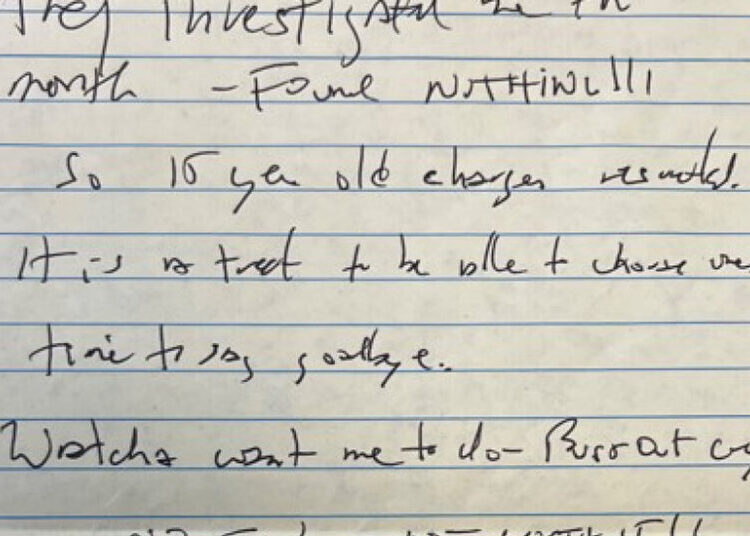 They investigated me for
month - Found NOTHING!!!
So 15 year old charges resulted.
It is a treat to be able to choose one
time to say goodbye.
Watcha want me to do - Burst out
NOT WORTH IT!!